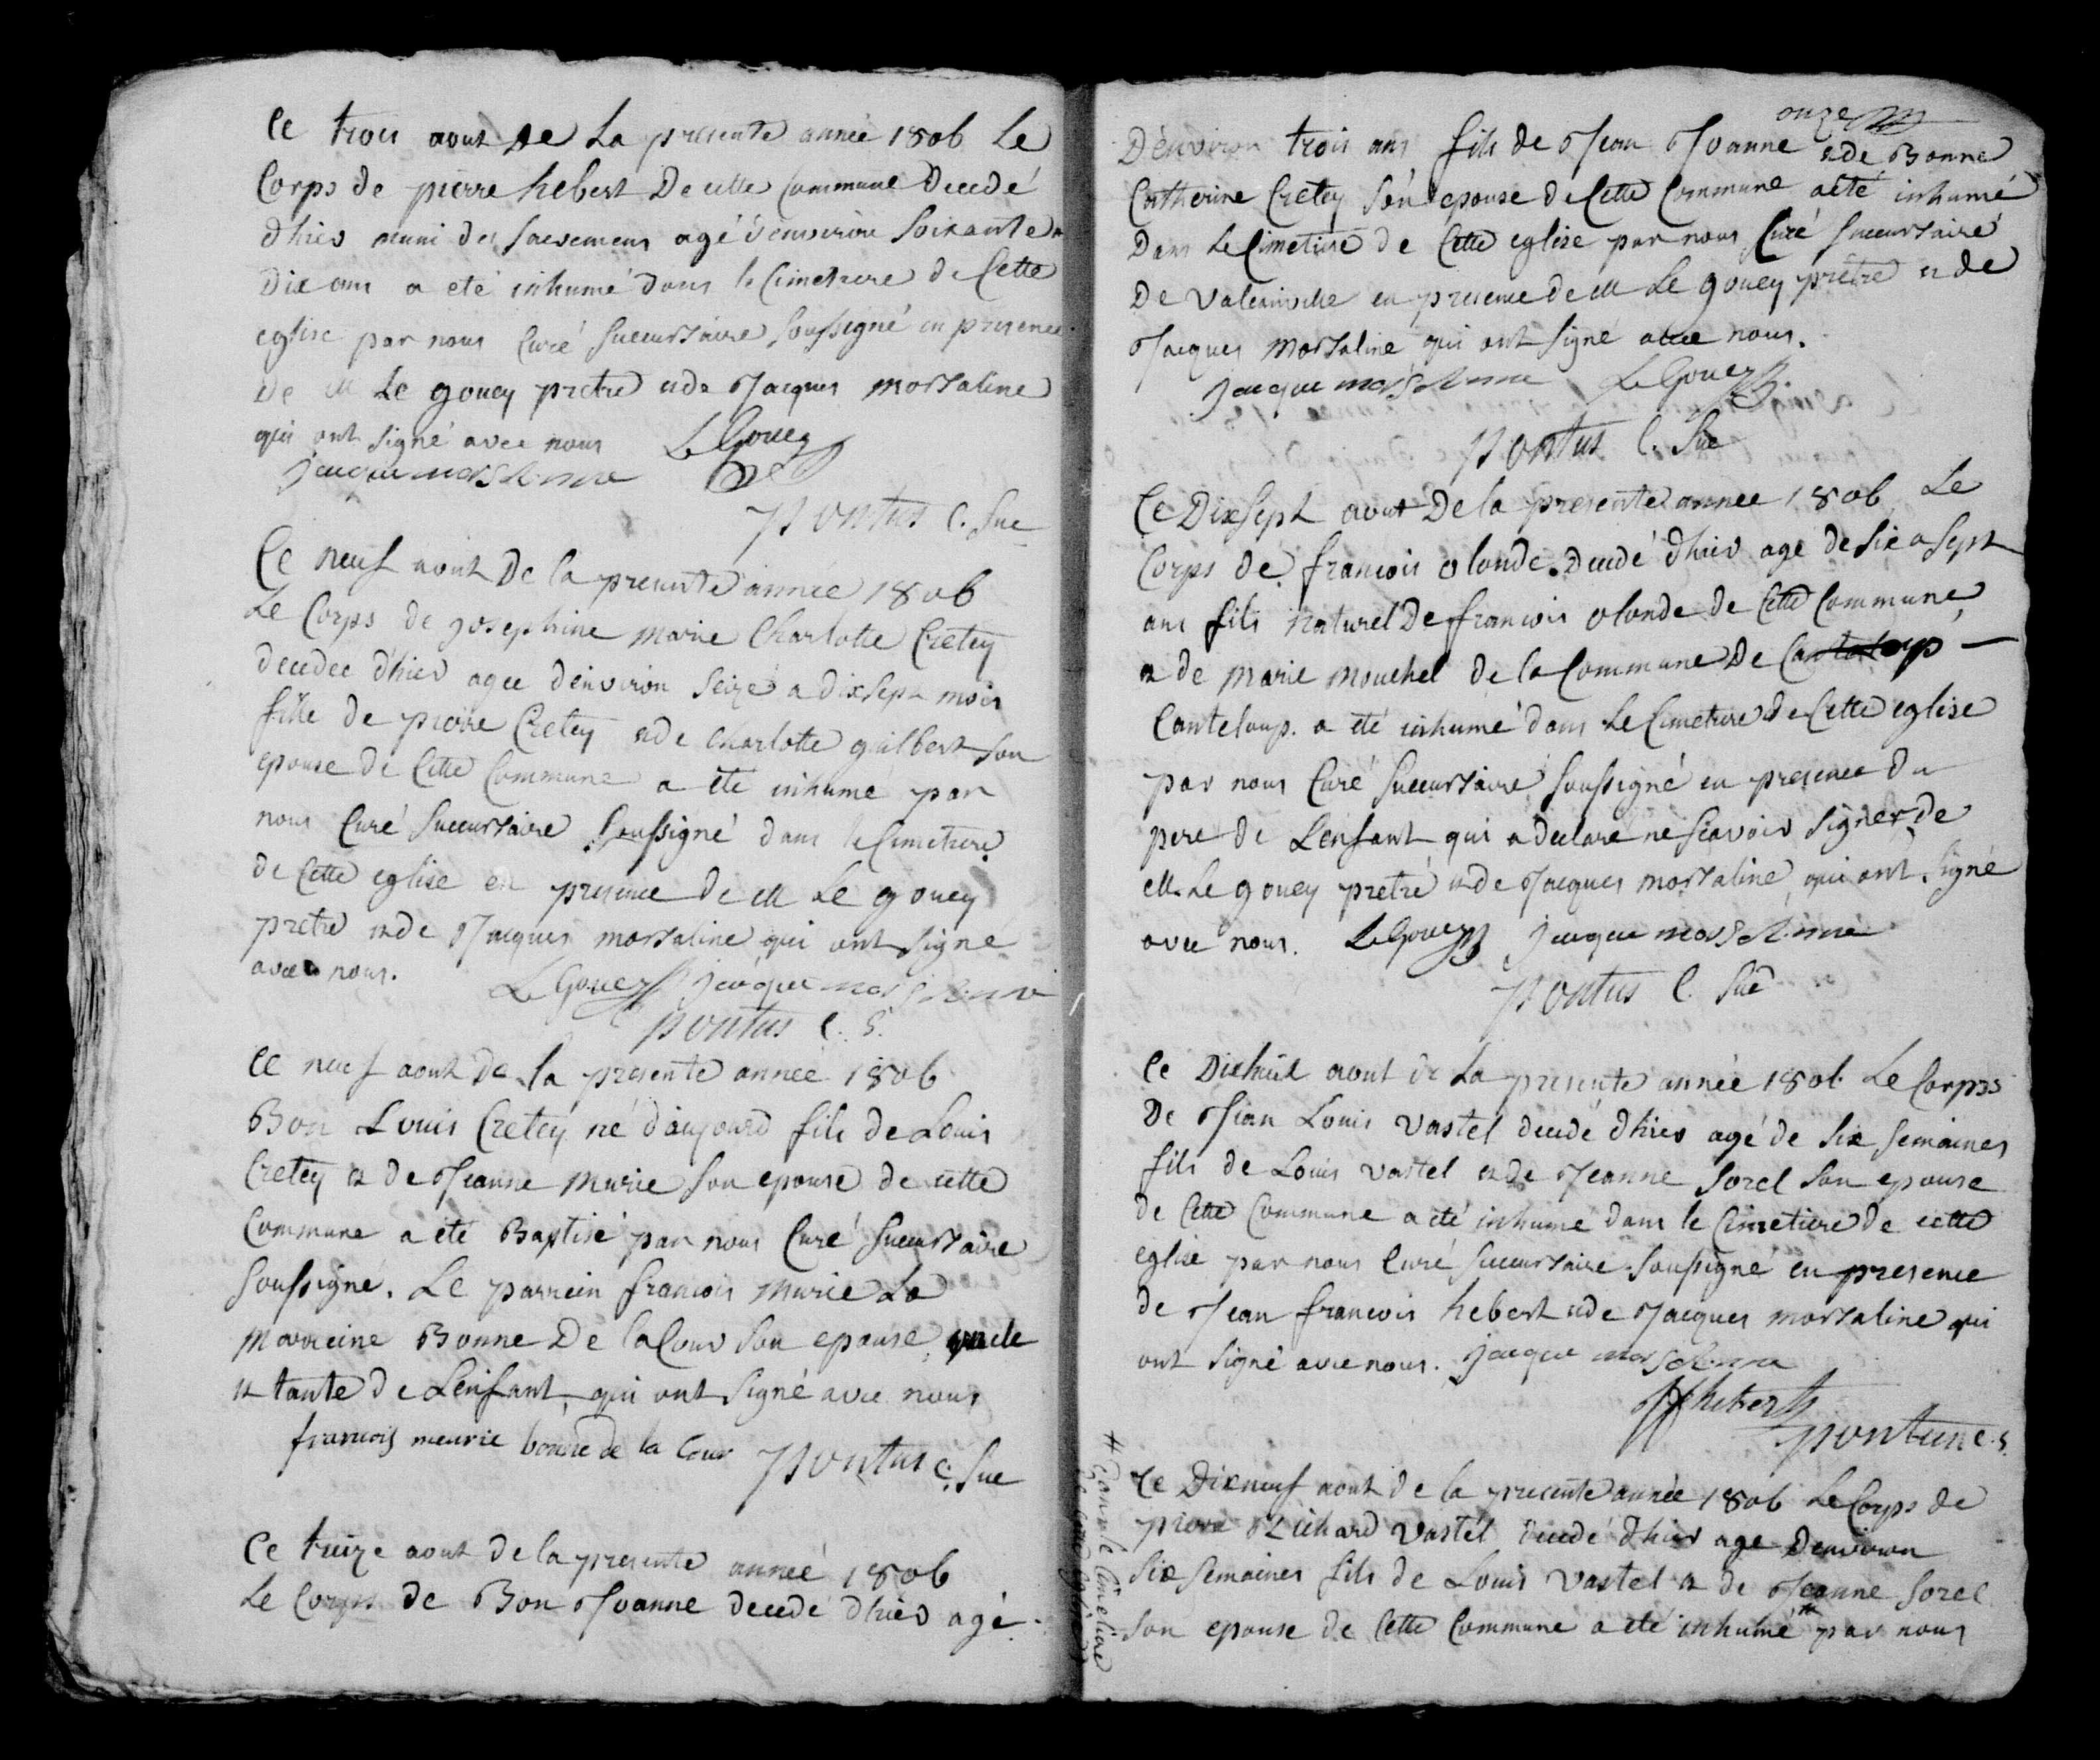 Ce trois aout de La presente année 1806 Le
Corps de pierre hebert De cette Commune Decedé
d'hier muni des sacremens agé d'environ soixante
Dix ans a eté inhumé dans le Cimetiere de Cette
eglise par nous Curé succursaire soussigné en presence
de M Le gouey pretre et de Jacques morsaline
qui ont signé avec nous LeGouey
jacque
pontus C. Suc
Ce neuf aout De la presente année 1806
Le Corps de josephine marie Charlotte Cretey
decedee d'hier agee d'environ seize a dixsept mois
fille de pierre Cretey et de Charlotte guilbert son
epouse de Cette Commune a eté inhumé par
nous Curé succursaire soussigné dans le Cimetiere
de Cette eglise en presence de M Le gouey
pretre et de Jacques morsaline qui ont signé
avec nous. LeGouey jacque
pontus C. S.
Ce neuf aout de la presente année 1806
Bon Louis Cretey né d'aujourd fils de Louis
Cretey et de Jeanne Murie son epouse de cette
Commune a eté Baptisé par nous Curé succursaire
soussigné. Le parrein francois Murie La
Marreine Bonne De laCour son epouse, oncle
et tante de L'enfant, qui ont signé avec nous
francois meurie bonne de la Cour pontus C. Suc
Ce treize aout de la presente année 1806
Le Corps de Bon Jvanne decedé d'hier agé
onze
D'environ trois ans fils de Jean Jvanne et de Bonne
Catherine Cretey son epouse de Cette Commune a eté inhumé
Dans Le Cimetiere de Cette eglise par nous Curé succursaire
De valcanville en presence de M Le gouey prêtre et de
Jacques Morsaline qui ont signé avec nous.
jacque LeGouey
pontus C. Suc
Ce Dixsept aout De la presente annee 1806 Le
Corps de francois olonde. Decedé d'hier agé de six a sept
ans fils naturel De francois olonde de Cette Commune
et de Marie Mouchel de la Commune De
Canteloup. a eté inhumé dans Le Cimetiere de Cette eglise
par nous Curé succursaire soussigné en presence du
pere de L'enfant qui a declaré ne scavoir signer, de
M. Le gouey pretre et de Jacques morsaline qui ont signé
avec nous. LeGouey jacque
pontus C. Suc
Ce Dixhuit aout de La presente année 1806 Le Corps
De Jean Louis Vastel decedé d'hier agé de six semaines
fils de Louis vastel et de Jeanne sorel son epouse
de Cette Commune a eté inhumé dans le Cimetiere de cette
eglise par nous Curé succursaire soussigné en presence
de Jean francois hebert et de Jacques morsaline qui
ont signé avec nous. jacque
JF hebert
pontus C. S.
Ce Dixneuf aout de la presente année 1806 Le Corps de
pierre Richard Vastel decedé d'hier agé D'environ
six semaines fils de Louis Vastel et de Jeanne sorel
son epouse de Cette Commune a eté inhumé # par nous
# dans le Cimetiere
de cette eglise